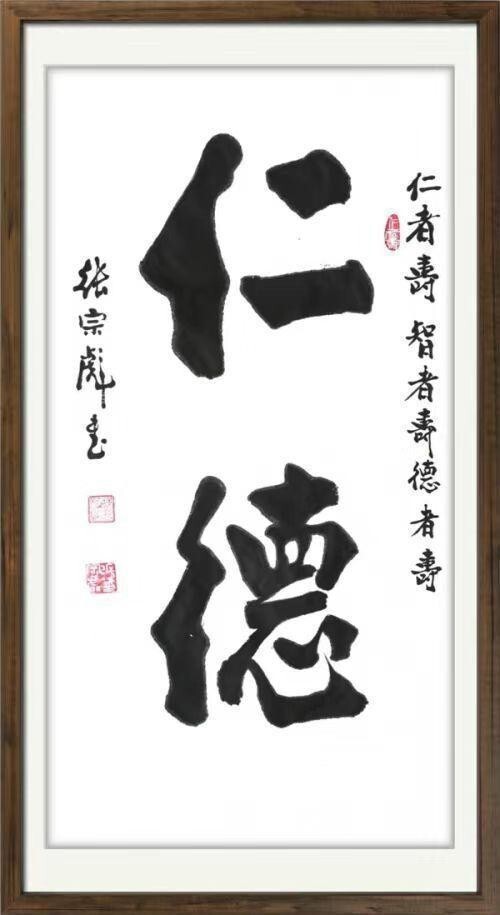 仁者壽智者壽德者壽
仁德
张宗彪书